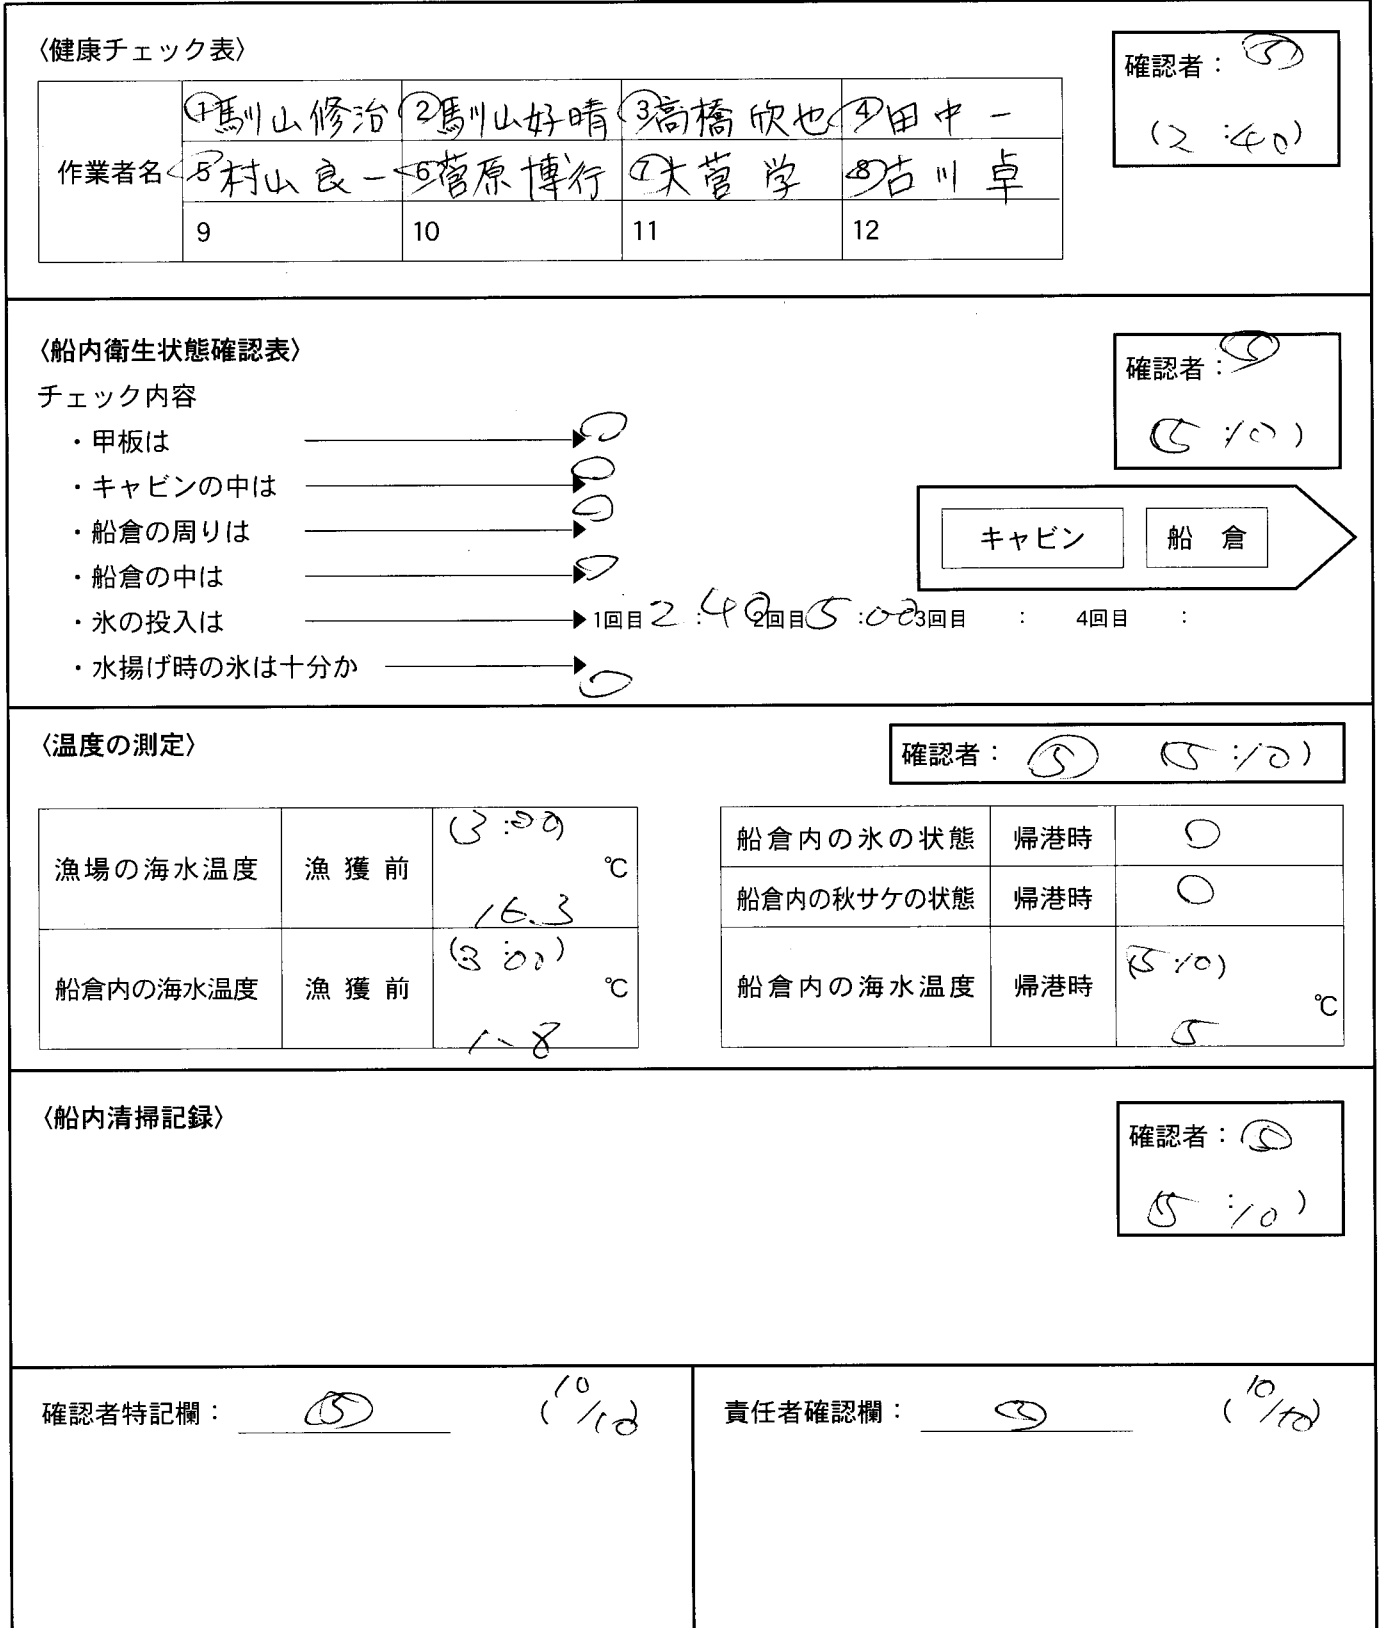 〈健康チェック表〉
確認者：⑤
(2:40)
作業者名
①馴山修治 ②馴山好晴 ③高橋欣也 ④田中一
⑤村山良一 ⑥菅原博行 ⑦大菅学 ⑧古川卓
9 10 11 12
〈船内衛生状態確認表〉
確認者：⑤
(5:10)
チェック内容
・甲板は ○
・キャビンの中は ○
・船倉の周りは ○
・船倉の中は ○
キャビン 船倉
・氷の投入は 1回目 2:40 2回目 5:00 3回目 : 4回目 :
・水揚げ時の氷は十分か ○
〈温度の測定〉
確認者：⑤ (5:10)
漁場の海水温度 漁獲前 (3:00) 16.3 ℃
船倉内の海水温度 漁獲前 (3:00) 1.8 ℃
船倉内の氷の状態 帰港時 ○
船倉内の秋サケの状態 帰港時 ○
船倉内の海水温度 帰港時 (5:10) 5 ℃
〈船内清掃記録〉
確認者：⑤
(5:10)
確認者特記欄：⑤ (10/10)
責任者確認欄： (10/10)